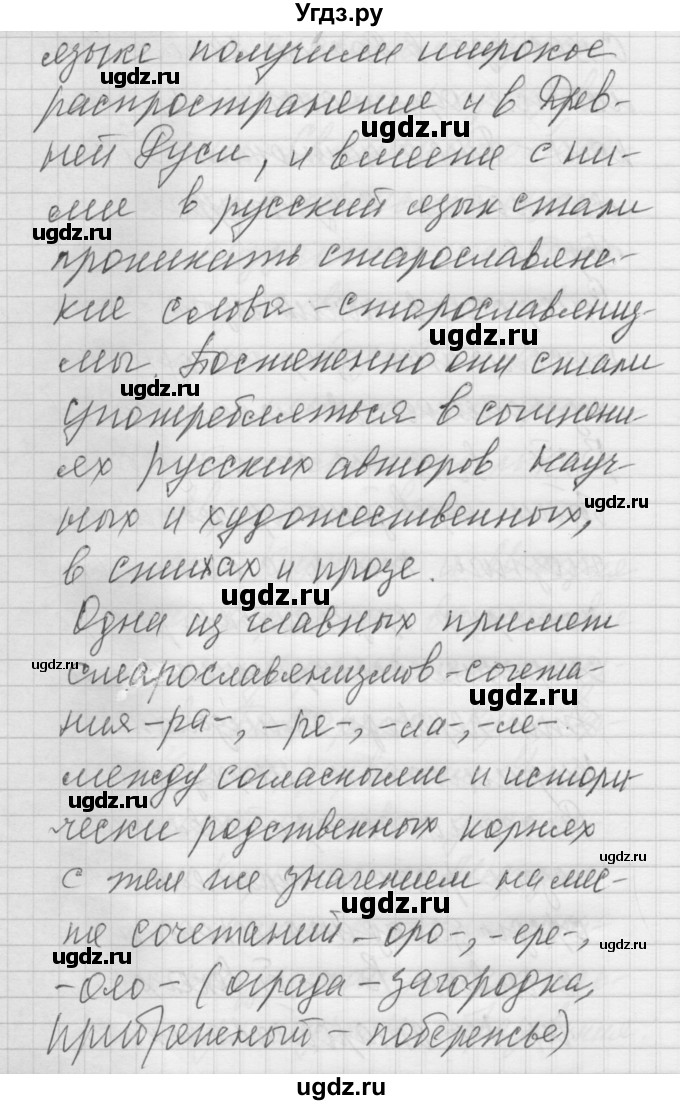 Угдз.ру
языке получили широкое
ugdz.ru
распространение и в Древ-
ugdz.ru
ней Руси, и вместе с ни-
ми в русский язык стали
ugdz.ru
проникать старославянс-
кие слова - старославяниз-
ugdz.ru
мы. Постепенно они стали
ugdz.ru
употребляться в сочинени-
ях русских авторов науч-
ugdz.ru
ных и художественных,
в стихах и прозе.
ugdz.ru
Одна из главных примет
ugdz.ru
старославянизмов - сочета-
ugdz.ru
ния -ра-, -ре-, -ла-, -ле-
между согласными и истори
ugdz.ru
чески родственных корнях
ugdz.ru
с тем же значением на мес-
ugdz.ru
те сочетаний -оро-, -ере-,
ugdz.ru
ugdz.ru
-оло- (ограда - загородка,
прибрежный - побережье)
ugdz.ru